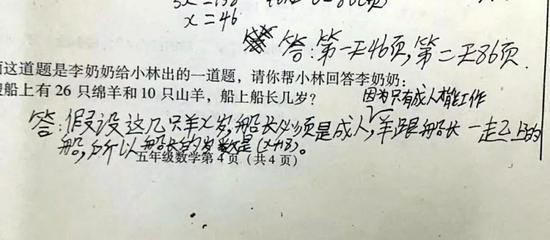 x=46
答:第一天46页,第二天86页.
面这道题是李奶奶给小林出的一道题，请你帮小林回答李奶奶：
船上有 26 只绵羊和 10 只山羊，船上船长几岁？
因为只有成人才能工作
答:假设这几只羊x岁,船长必须是成人,羊跟船长一起上的
船,所以船长的岁数是(x+18)。
五年级数学第 4 页（共 4 页）